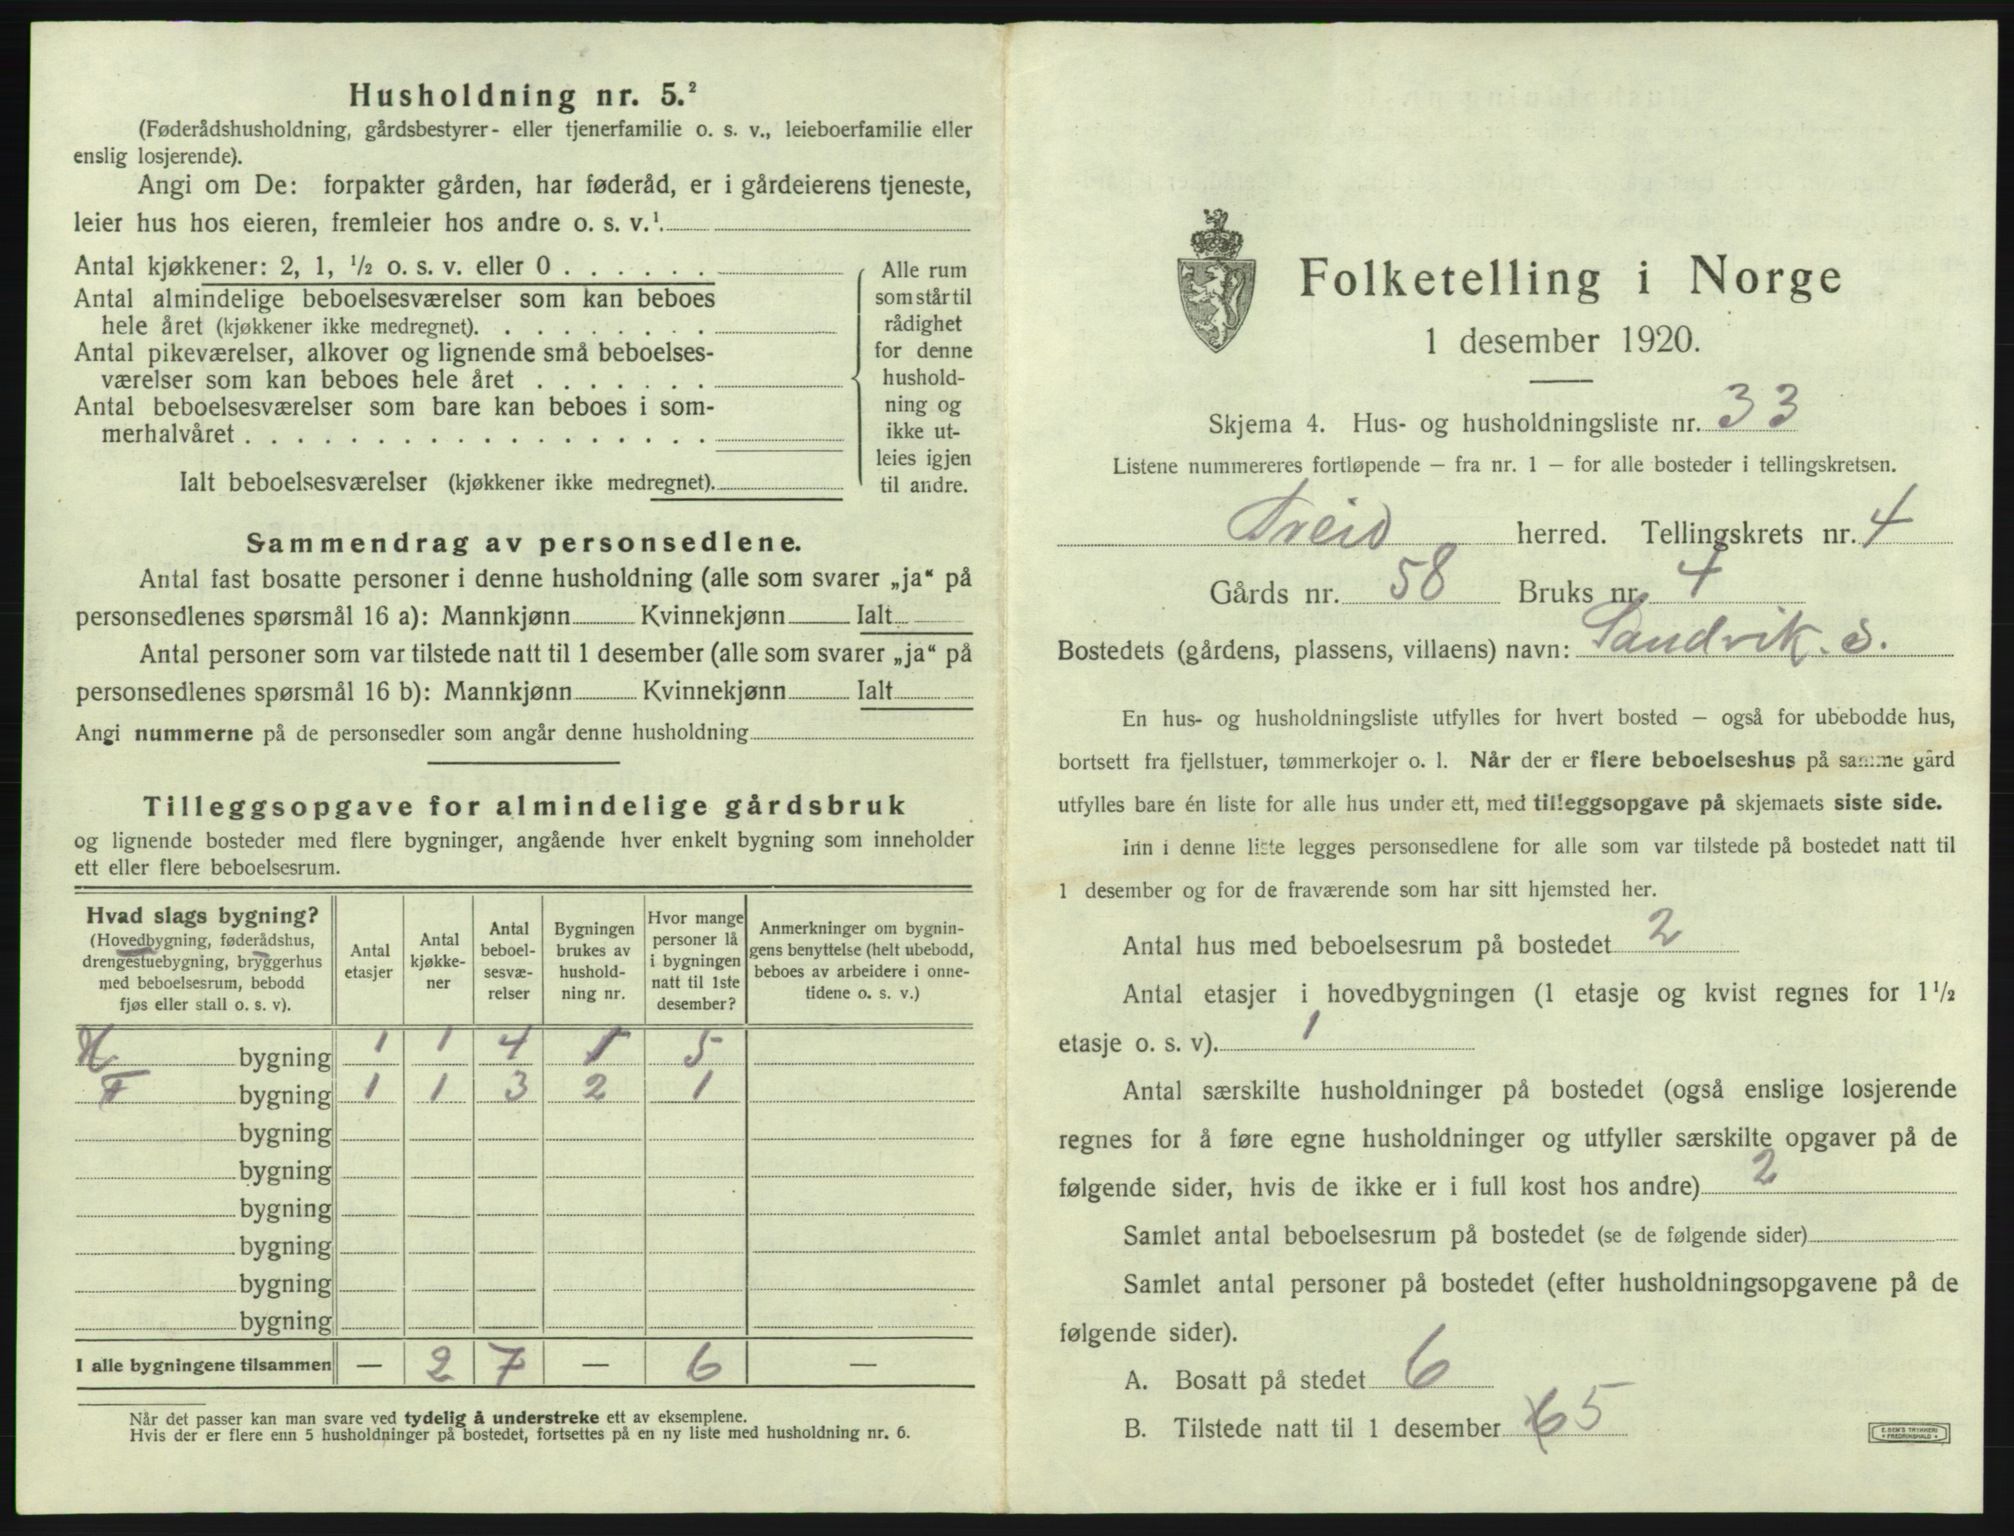 Husholdning nr. 5.²
(Føderådshusholdning, gårdsbestyrer- eller tjenerfamilie o. s. v., leieboerfamilie eller
enslig losjerende).
Angi om De: forpakter gården, har føderåd, er i gårdeierens tjeneste,
leier hus hos eieren, fremleier hos andre o. s. v.¹.
Antal kjøkkener: 2, 1, ½ o. s. v. eller 0 . . . . . .
Antal almindelige beboelsesværelser som kan beboes
hele året (kjøkkener ikke medregnet). . . . . . . . .
Antal pikeværelser, alkover og lignende små beboelses-
værelser som kan beboes hele året . . . . . . .
Antal beboelsesværelser som bare kan beboes i som-
merhalvåret . . . . . . . . . . . . . . . . . .
Ialt beboelsesværelser (kjøkkener ikke medregnet).
Alle rum
som står til
rådighet
for denne
hushold-
ning og
ikke ut-
leies igjen
til andre.
Sammendrag av personsedlene.
Antal fast bosatte personer i denne husholdning (alle som svarer „ja“ på
personsedlenes spørsmål 16 a): Mannkjønn Kvinnekjønn Ialt
Antal personer som var tilstede natt til 1 desember (alle som svarer „ja“ på
personsedlenes spørsmål 16 b): Mannkjønn Kvinnekjønn Ialt
Angi nummerne på de personsedler som angår denne husholdning
Tilleggsopgave for almindelige gårdsbruk
og lignende bosteder med flere bygninger, angående hver enkelt bygning som inneholder
ett eller flere beboelsesrum.
Hvad slags bygning?
(Hovedbygning, føderådshus,
drengestuebygning, bryggerhus
med beboelsesrum, bebodd
fjøs eller stall o. s. v).
Antal
etasjer
Antal
kjøkke-
ner
Antal
beboel-
sesvæ-
relser
Bygningen
brukes av
hushold-
ning nr.
Hvor mange
personer lå
i bygningen
natt til 1ste
desember?
Anmerkninger om bygnin-
gens benyttelse (helt ubebodd,
beboes av arbeidere i onne-
tidene o. s. v.)
H bygning 1 1 4 1 5
F bygning 1 1 3 2 1
bygning
bygning
bygning
bygning
bygning
bygning
I alle bygningene tilsammen — 2 7 — 6 —
Når det passer kan man svare ved tydelig å understreke ett av eksemplene.
Hvis der er flere enn 5 husholdninger på bostedet, fortsettes på en ny liste med husholdning nr. 6.
Folketelling i Norge
1 desember 1920.
Skjema 4. Hus- og husholdningsliste nr. 33
Listene nummereres fortløpende — fra nr. 1 — for alle bosteder i tellingskretsen.
Treid herred. Tellingskrets nr. 4
Gårds nr. 58 Bruks nr. 4
Bostedets (gårdens, plassens, villaens) navn: Sandvik. S.
En hus- og husholdningsliste utfylles for hvert bosted — også for ubebodde hus,
bortsett fra fjellstuer, tømmerkojer o. l. Når der er flere beboelseshus på samme gård
utfylles bare én liste for alle hus under ett, med tilleggsopgave på skjemaets siste side.
Inn i denne liste legges personsedlene for alle som var tilstede på bostedet natt til
1 desember og for de fraværende som har sitt hjemsted her.
Antal hus med beboelsesrum på bostedet 2
Antal etasjer i hovedbygningen (1 etasje og kvist regnes for 1½
etasje o. s. v). 1
Antal særskilte husholdninger på bostedet (også enslige losjerende
regnes for å føre egne husholdninger og utfyller særskilte opgaver på de
følgende sider, hvis de ikke er i full kost hos andre) 2
Samlet antal beboelsesrum på bostedet (se de følgende sider)
Samlet antal personer på bostedet (efter husholdningsopgavene på de
følgende sider).
A. Bosatt på stedet 6
B. Tilstede natt til 1 desember 6 5
E. SEM'S TRYKKERI
FREDRIKSHALD